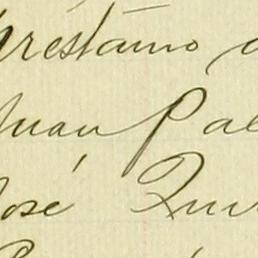 préstamo a
Juan Pal
José Qui